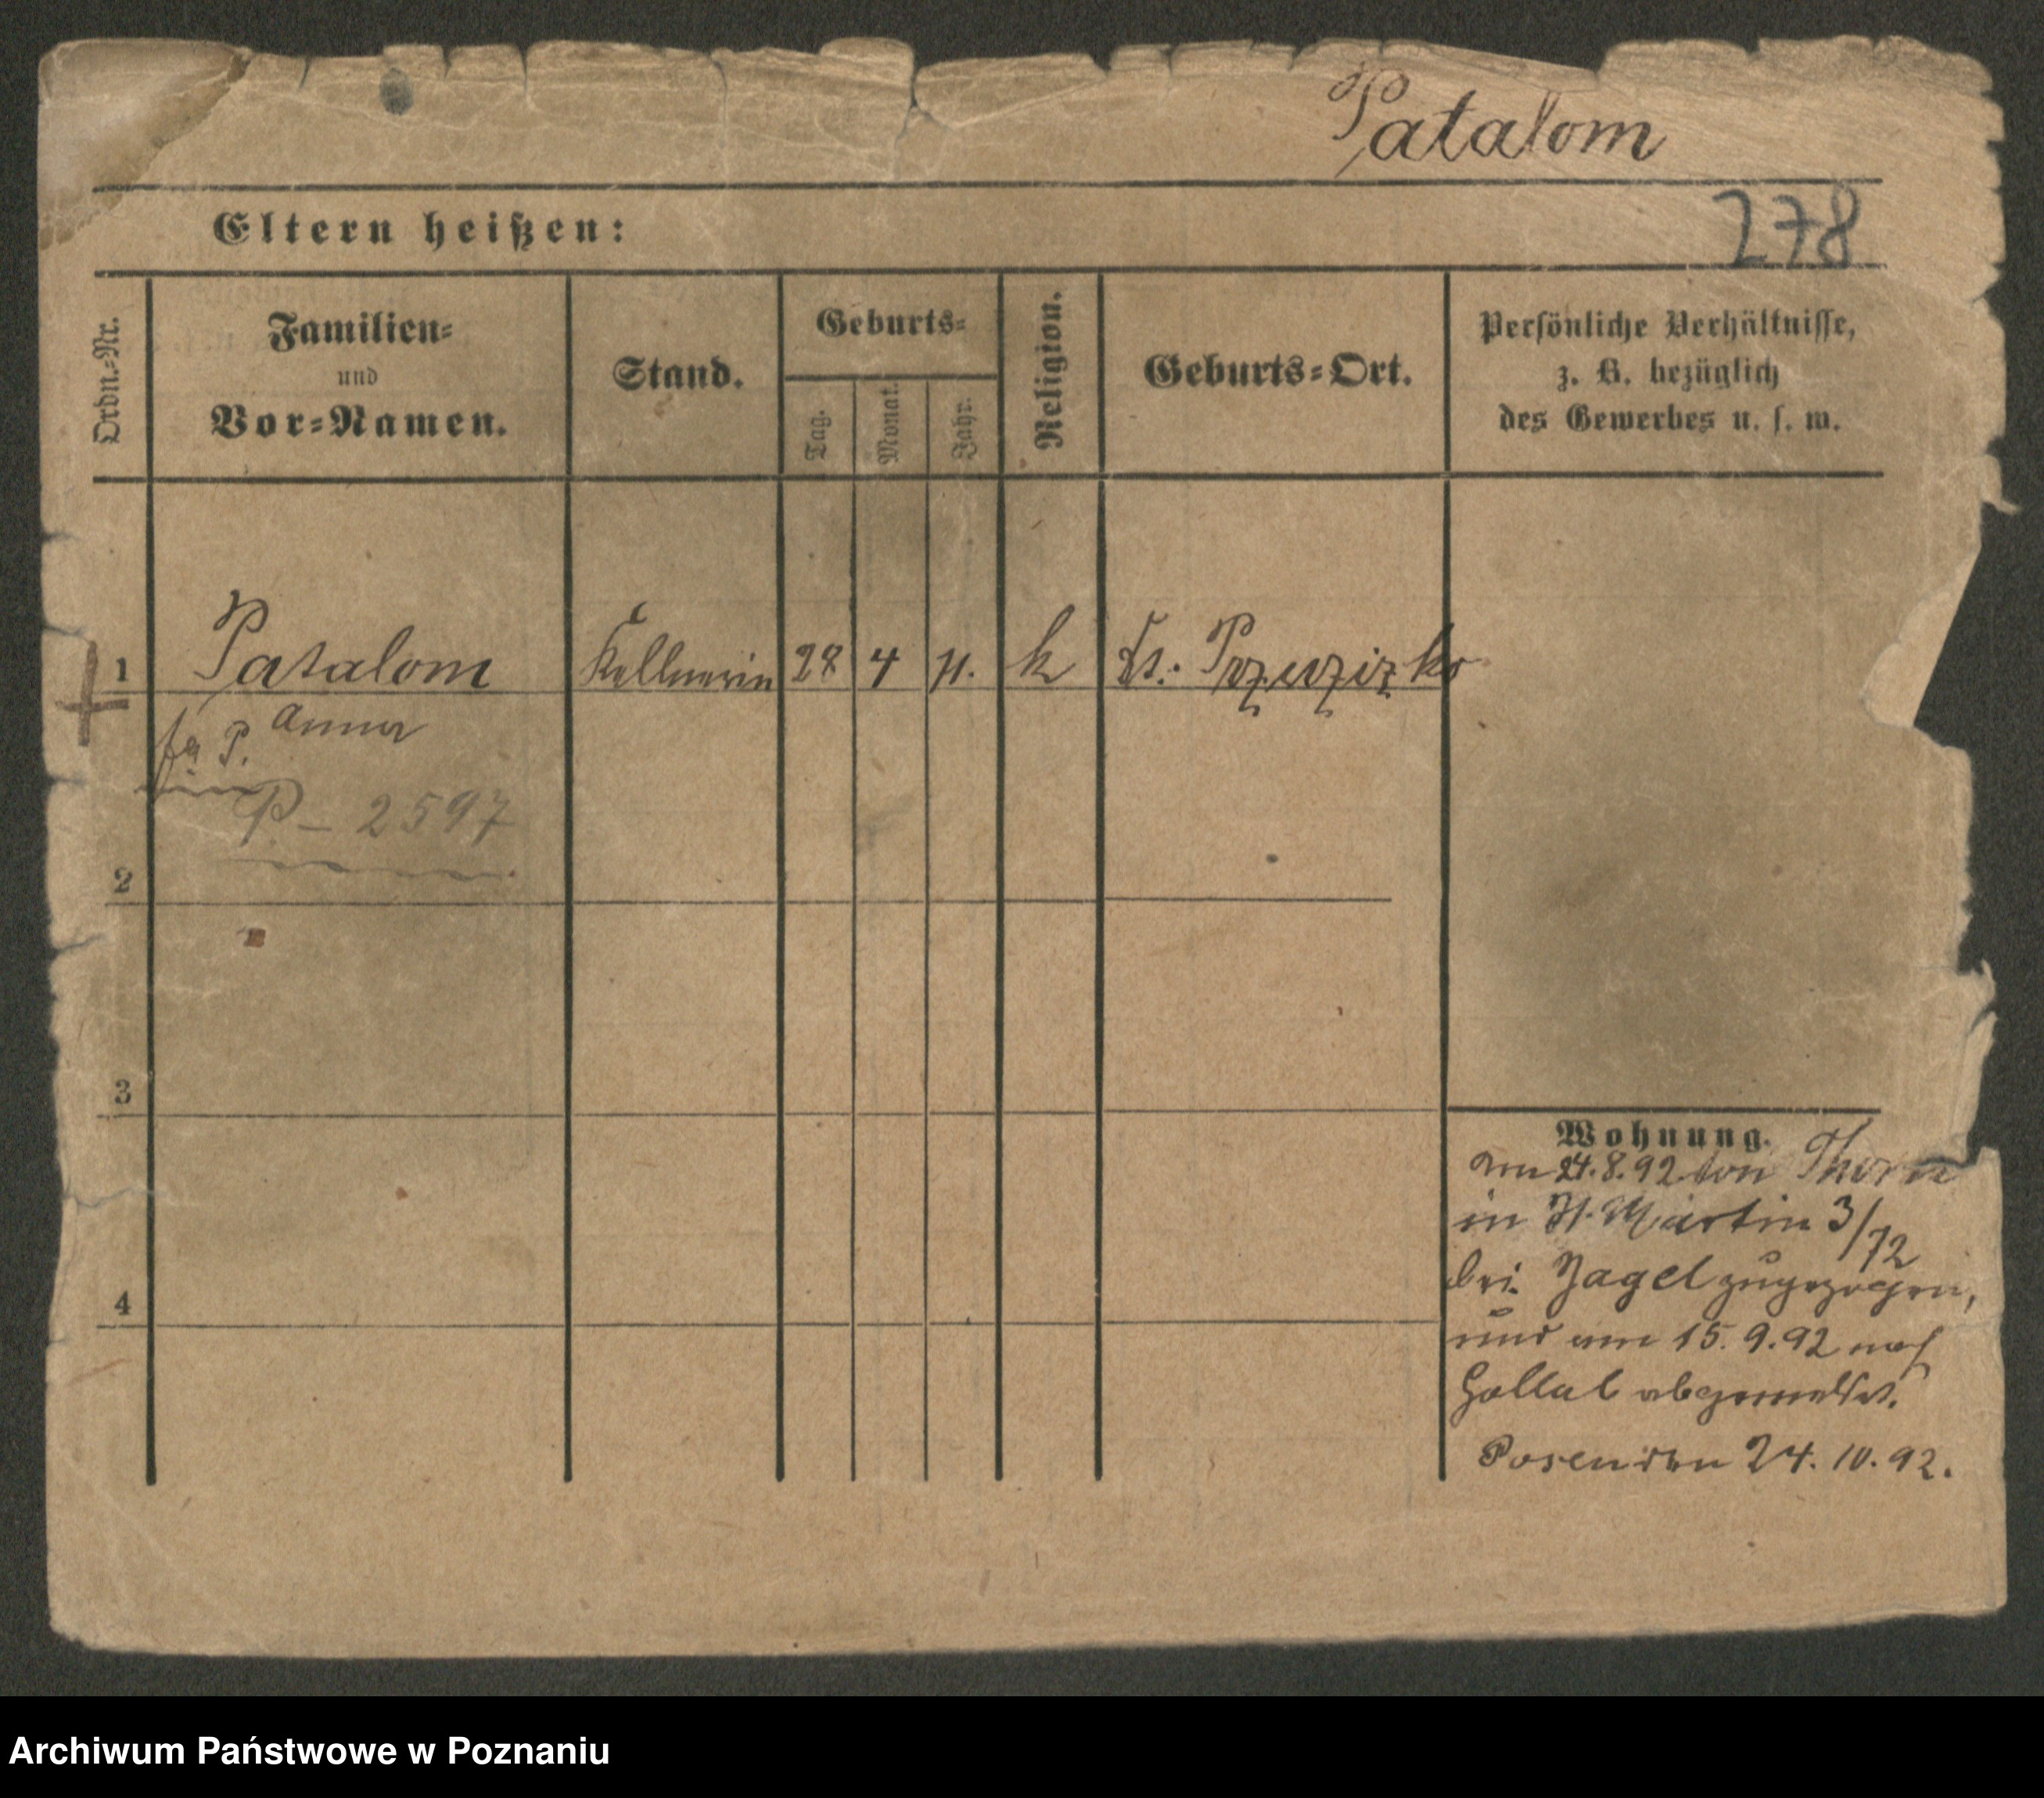 Patalom
278
Eltern heißen:
Ordn.-Nr.
Familien-
und
Vor-Namen.
Stand.
Geburts-
Tag.
Monat.
Jahr.
Religion.
Geburts-Ort.
Persönliche Verhältnisse,
z. B. bezüglich
des Gewerbes u. s. w.
1
Patalom
Kellnerin
28
4
71.
k
Anna
P.
P - 2597
2
3
4
Wohnung.
am 24.8.92 von Thorn
in St. Martin 3/72
bei Jagel zugezogen,
und am 15.9.92 nach
Gollub abgemeldet.
Posen den 24.10.92.
Archiwum Państwowe w Poznaniu